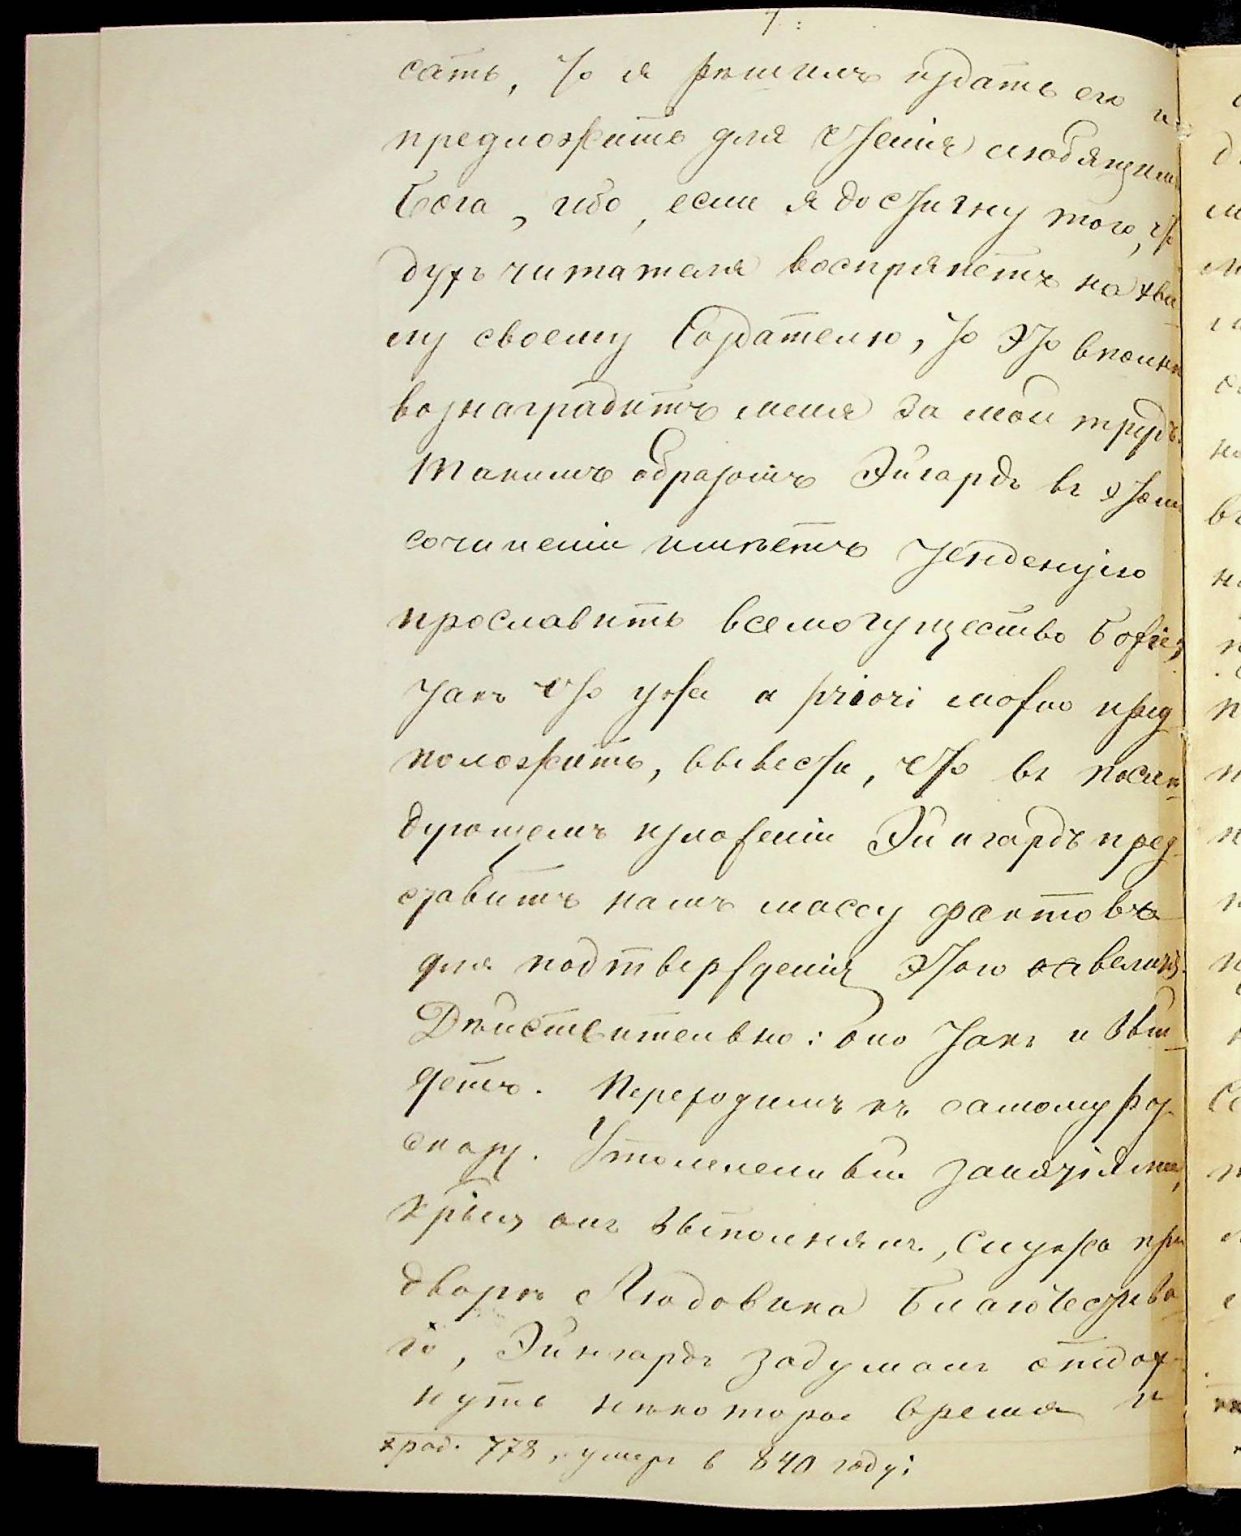 7:
сать, что я рѣшилъ издать его и
предложить для чтенія любящимъ
Бога, ибо, если я достигну того, что
духъ читателя воспрянетъ на хва-
лу своему Создателю, то это вполнѣ
вознаградитъ меня за мой трудъ.
Такимъ образомъ Эйгардъ въ этомъ
сочиненіи имѣетъ тенденцію
прославить всемогущество Божіе,
такъ что уже a priori можно пред-
положить, вывести, что въ послѣ-
дующемъ изложеніи Эйнгардъ пред-
ставитъ намъ массу фактовъ
для подтвержденія этого величія.
Дѣйствительно: оно такъ и вый-
детъ. Переходимъ къ самому раз-
сказу. Утомленный занятіями,
которыя онъ выполнялъ, служа при
дворѣ Людовика Благочестива-
го, Эйнгардъ задумалъ отдох-
нуть нѣкоторое время и
*род. 778, умеръ в 840 году;